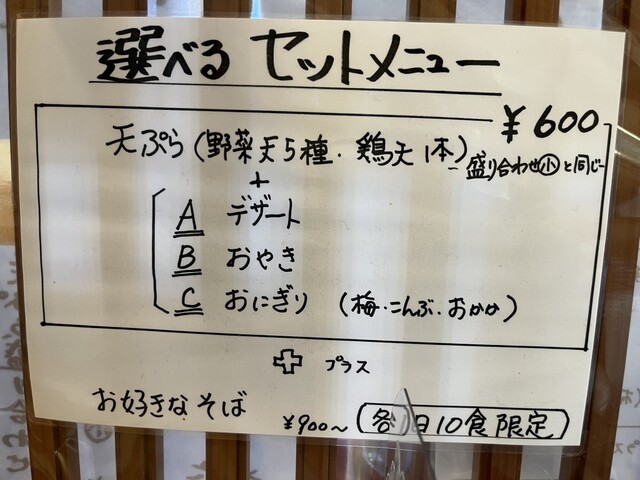 選べる セットメニュー
¥600
天ぷら(野菜天5種・鶏天1本)
-盛り合わせ小と同じ-
+
A デザート
B おやき
C おにぎり (梅・こんぶ・おかか)
✚ プラス
お好きなそば ¥900〜 (各)日10食限定